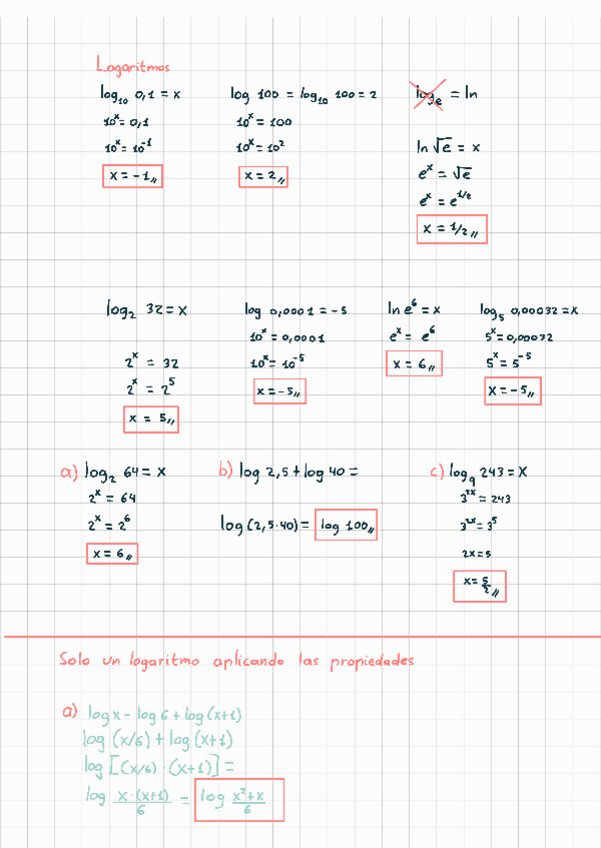 Logaritmos
log₁₀ 0,1 = x
10ˣ = 0,1
10ˣ = 10⁻¹
x = -1,,
log 100 = log₁₀ 100 = 2
10ˣ = 100
10ˣ = 10²
x = 2,,
logₑ = ln
ln √e = x
eˣ = √e
eˣ = e^1/2
x = 1/2,,
log₂ 32 = x
2ˣ = 32
2ˣ = 2⁵
x = 5,,
log 0,0001 = -5
10ˣ = 0,0001
10ˣ = 10⁻⁵
x = -5,,
ln e⁶ = x
eˣ = e⁶
x = 6,,
log₅ 0,00032 = x
5ˣ = 0,00032
5ˣ = 5⁻⁵
x = -5,,
a) log₂ 64 = x
2ˣ = 64
2ˣ = 2⁶
x = 6,,
b) log 2,5 + log 40 =
log (2,5·40) = log 100,,
c) log₉ 243 = x
3²ˣ = 243
3²ˣ = 3⁵
2x = 5
x = 5/2,,
Solo un logaritmo aplicando las propiedades
a) log x - log 6 + log (x+1)
log (x/6) + log (x+1)
log [(x/6) · (x+1)] =
log x·(x+1)/6 = log x²+x/6